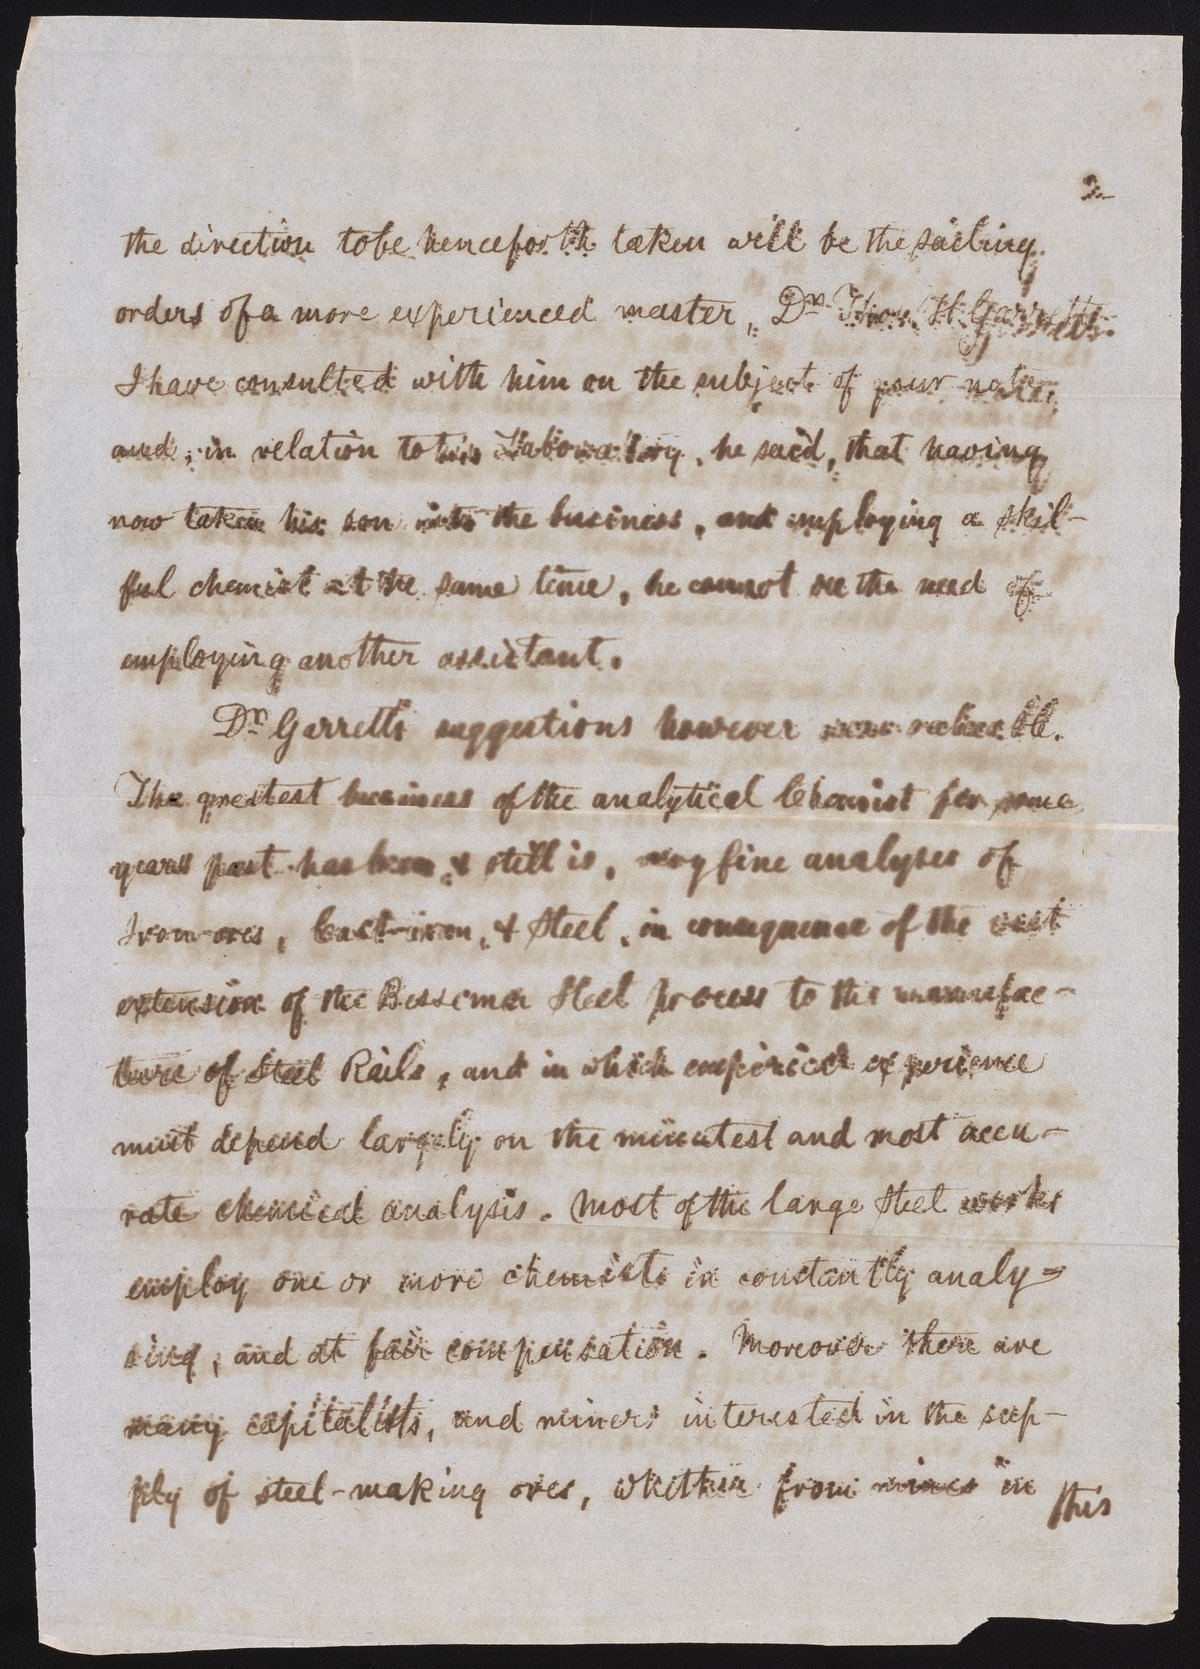 2
the direction to be henceforth taken will be the sailing
orders of a more experienced master, Dr. Thos. H. Garrett.
I have consulted with him on the subject of your note,
and, in relation to his Laboratory, he said, that having
now taken his son into the business, and employing a skil-
ful chemist at the same time, he cannot see the need of
employing another assistant.
Dr. Garrett's suggestions however were valuable.
The greatest business of the analytical Chemist for some
years past has been, & still is, very fine analyses of
Iron-ores, Cast-iron, & Steel, in consequence of the vast
extension of the Bessemer Steel process to the manufac-
ture of Steel Rails, and in which empirical experience
must depend largely on the minutest and most accu-
rate chemical analysis. Most of the large Steel works
employ one or more chemists in constantly analy=
sing, and at fair compensation. Moreover there are
many capitalists, and miners interested in the sup-
ply of steel-making ores, whether from mines in
this